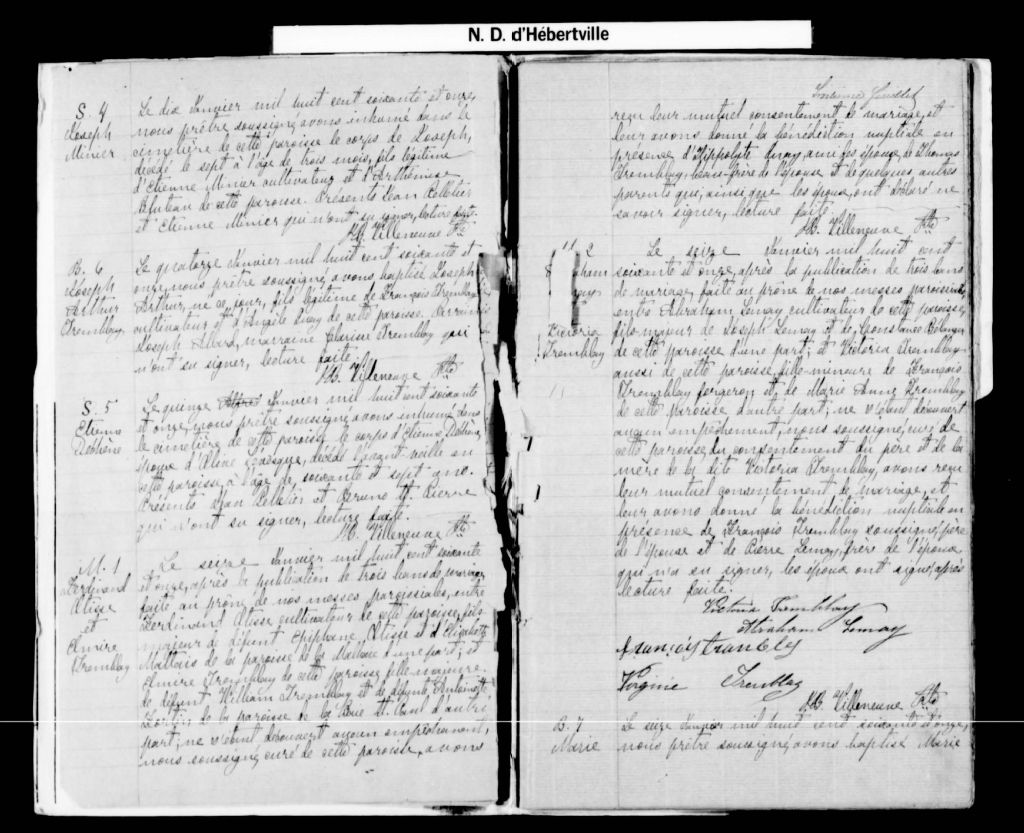 N. D. d'Hébertville
S. 4
Joseph
Minier
Le dix Janvier mil huit cent soixante et onze,
nous prêtre soussigné, avons inhumé dans le
cimetière de cette paroisse le corps de Joseph,
décédé le sept à l'âge de trois mois, fils légitime
d'Etienne Minier cultivateur et d'Arthémise
de cette paroisse. Présents Jean Pelletier
et Etienne Minier qui n'ont su signer, lecture faite.
Villeneuve Ptre
B. 6
Joseph
Arthur
Tremblay
Le quatorze Janvier mil huit cent soixante et
onze, nous prêtre soussigné, avons baptisé Joseph
Arthur, né ce jour, fils légitime de François Tremblay
cultivateur et d'Angèle de cette paroisse. Parrain
Joseph marraine Clarisse Tremblay qui
n'ont su signer, lecture faite.
Villeneuve Ptre
S. 5
Etienne
Le quinze Janvier mil huit cent soixante
et onze, nous prêtre soussigné, avons inhumé dans
le cimetière de cette paroisse le corps d'Etienne
époux d'Olive Lévesque, décédé l'avant-veille en
cette paroisse, à l'âge de soixante et sept ans.
Présents Jean Pelletier et Bruno St. Pierre
qui n'ont su signer, lecture faite.
Villeneuve Ptre
M. 1
Ferdinand
Alisse
et
Elmire
Tremblay
Le seize Janvier mil huit cent soixante
et onze, après la publication de trois bans de mariage
faite au prône de nos messes paroissiales, entre
Ferdinand Alisse cultivateur de cette paroisse, fils
majeur de défunt Epiphane Alisse et d'Elisabeth
Maltais de la paroisse de la Malbaie d'une part; et
Elmire Tremblay de cette paroisse, fille majeure
de défunt William Tremblay et de défunte Antoinette
Fortin de la paroisse de la Baie St. Paul d'autre
part; ne s'étant découvert aucun empêchement,
nous soussigné, curé de cette paroisse, avons
reçu leur mutuel consentement de mariage, et
leur avons donné la bénédiction nuptiale en
présence d'Hippolyte ami des époux, de Thomas
Tremblay, beau-frère de l'épouse et de quelques autres
parents qui, ainsi que les époux, ont déclaré ne
savoir signer, lecture faite.
Villeneuve Ptre
2
Victoria
Tremblay
Le seize Janvier mil huit cent
soixante et onze, après la publication de trois bans
de mariage, faite au prône de nos messes paroissiales,
entre Abraham Lemay cultivateur de cette paroisse,
fils majeur de Joseph Lemay et de Constance Bélanger
de cette paroisse d'une part; et Victoria Tremblay
aussi de cette paroisse, fille mineure de François
Tremblay forgeron et de Marie Anne Tremblay
de cette paroisse d'autre part; ne s'étant découvert
aucun empêchement, nous soussigné, curé de
cette paroisse, du consentement du père et de la
mère de la dite Victoria Tremblay, avons reçu
leur mutuel consentement de mariage, et
leur avons donné la bénédiction nuptiale en
présence de François Tremblay soussigné, père
de l'épouse et de Pierre Lemay, frère de l'époux,
qui n'a su signer, les époux ont signé, après
lecture faite.
Victoria Tremblay
Abraham Lemay
françois trambley
Virginie Tremblay
Villeneuve Ptre
B. 7
Marie
Le seize Janvier mil huit cent soixante et onze,
nous prêtre soussigné, avons baptisé Marie